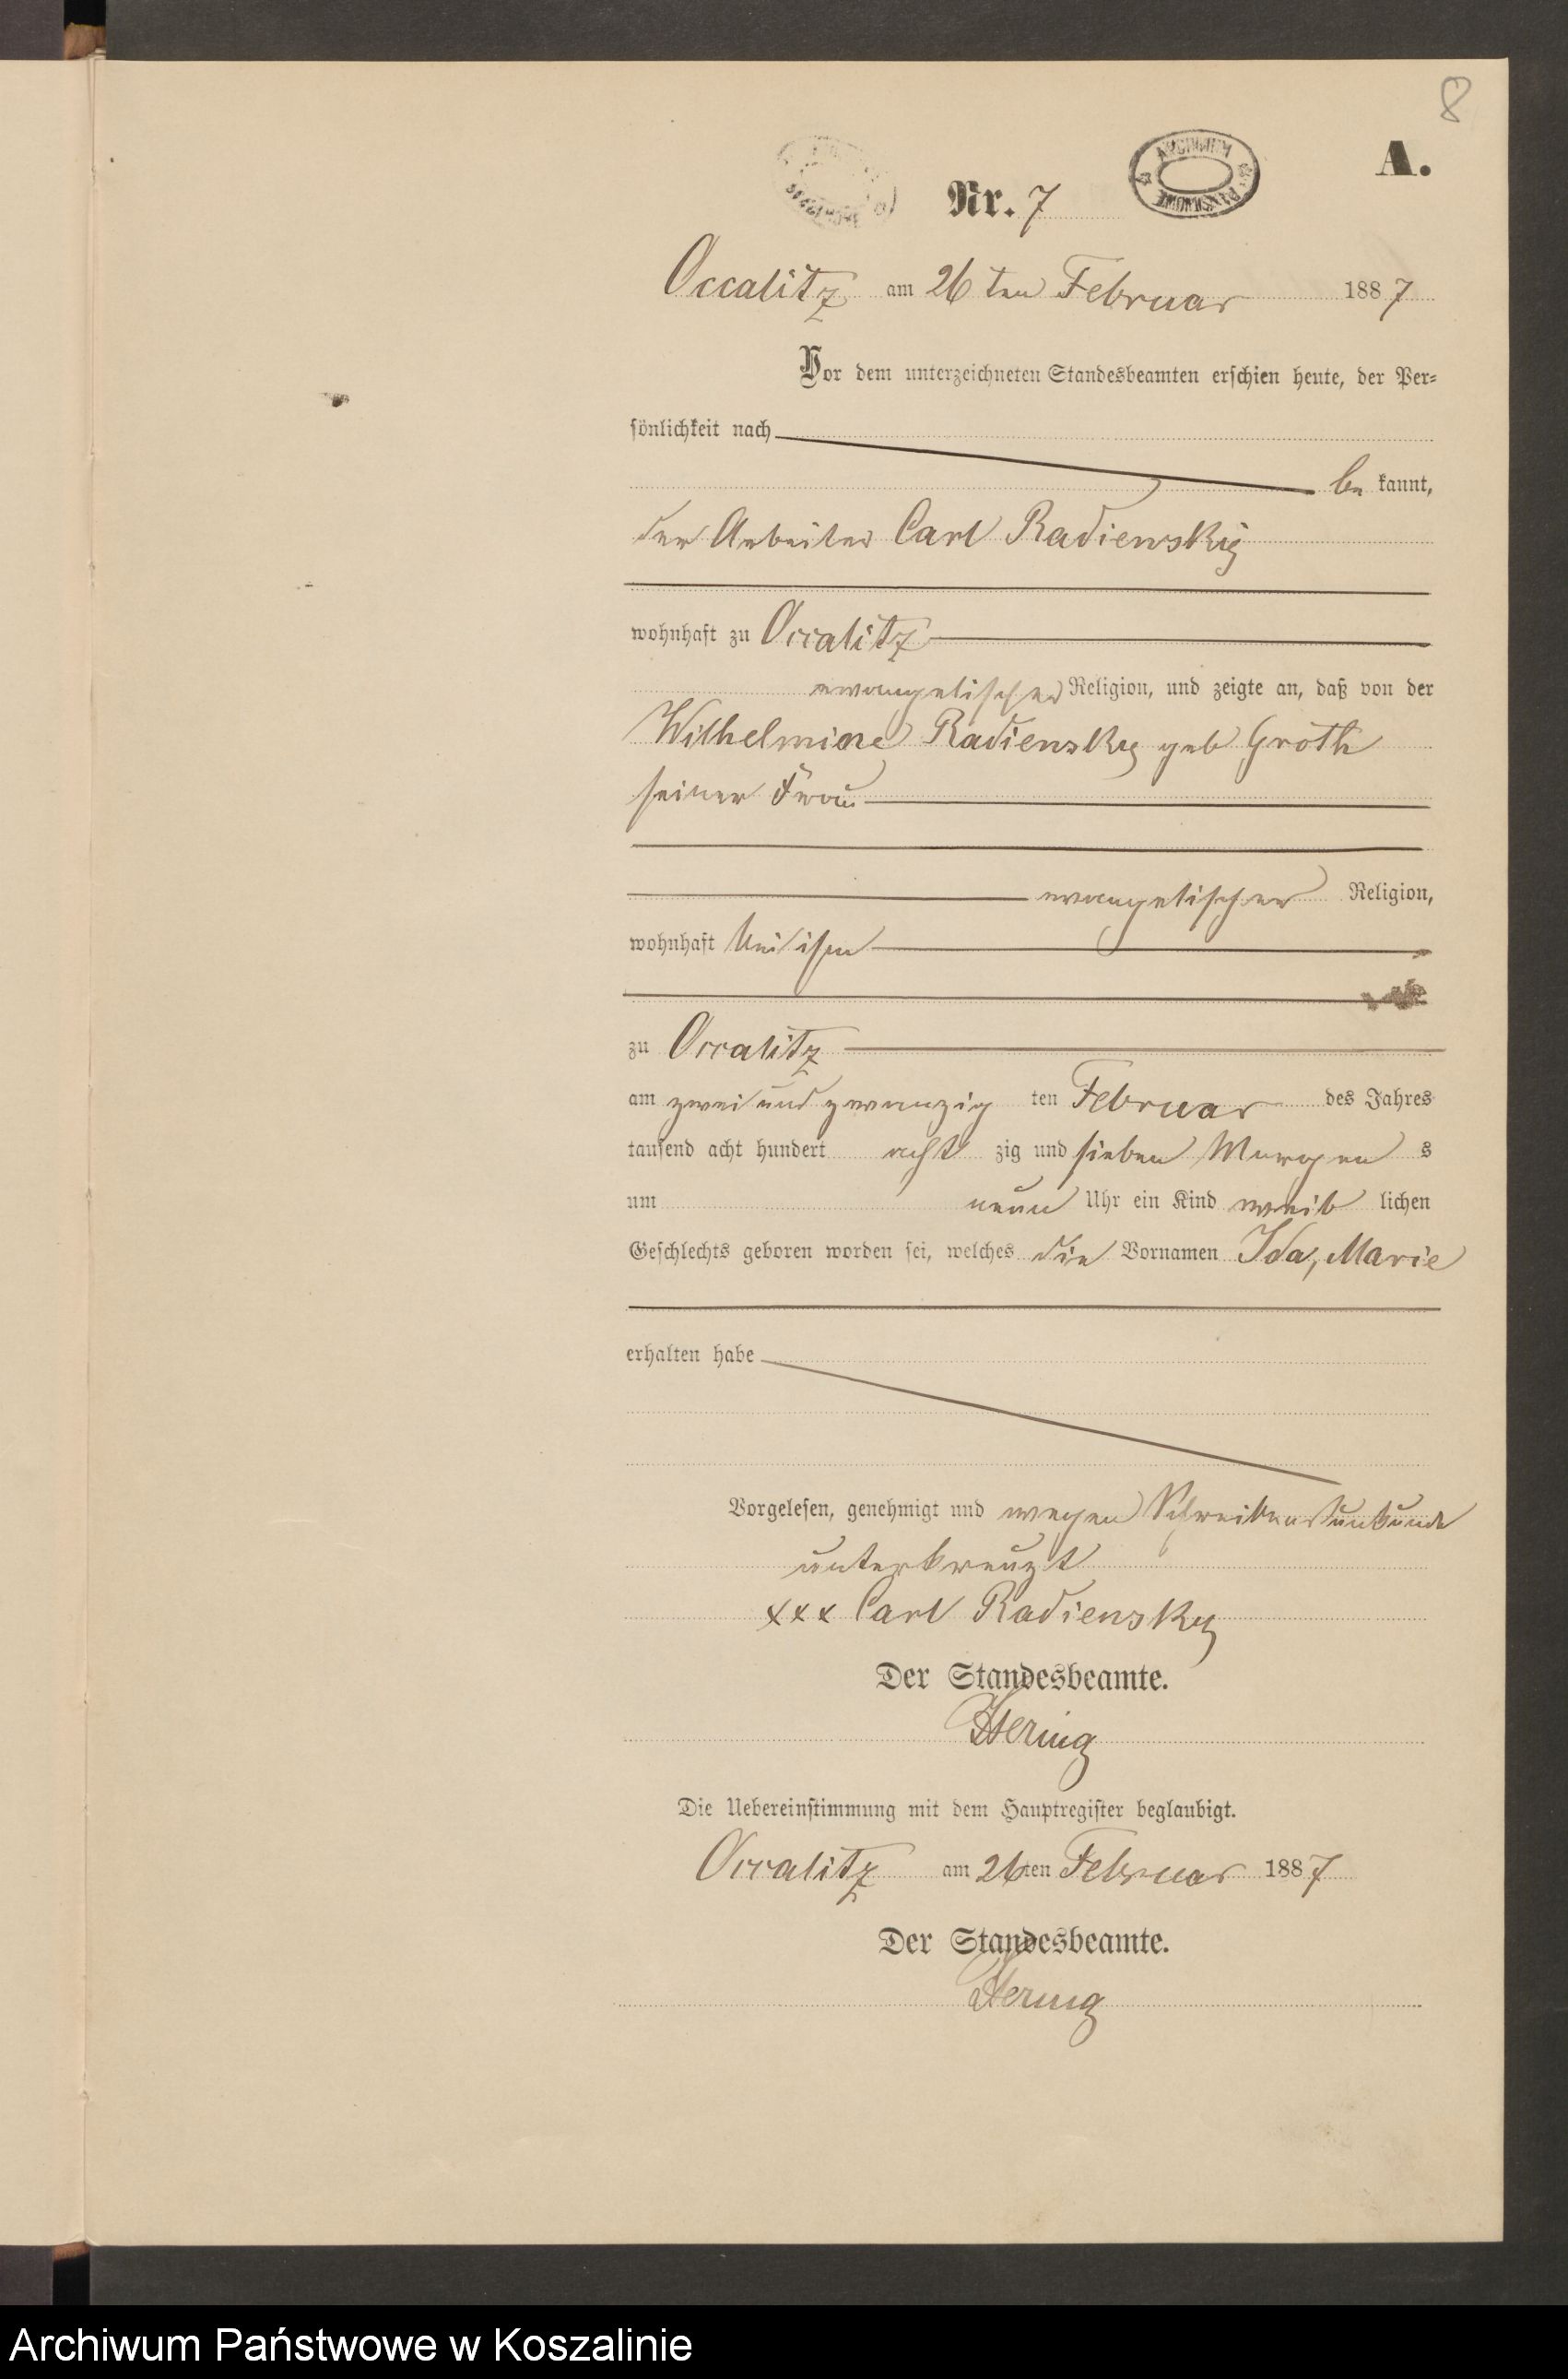 8
A.
Nr. 7
ARCHIWUM PAŃSTWOWE
Occalitz am 26 ten Februar 1887
Vor dem unterzeichneten Standesbeamten erschien heute, der Per-
sönlichkeit nach
be kannt,
der Arbeiter Carl Radiensky
wohnhaft zu Occalitz
evangelischer Religion, und zeigte an, daß von der
Wilhelmine Radiensky geb Groth
seiner Frau
evangelischer Religion,
wohnhaft bei ihm
zu Occalitz
am zwei und zwanzig ten Februar des Jahres
tausend acht hundert acht zig und sieben Morgen s
um neun Uhr ein Kind weib lichen
Geschlechts geboren worden sei, welches die Vornamen Ida, Marie
erhalten habe
Vorgelesen, genehmigt und wegen Schreibensunkunde
unterkreuzt
xxx Carl Radiensky
Der Standesbeamte.
Hering
Die Uebereinstimmung mit dem Hauptregister beglaubigt.
Occalitz am 26ten Februar 1887
Der Standesbeamte.
Hering
Archiwum Państwowe w Koszalinie